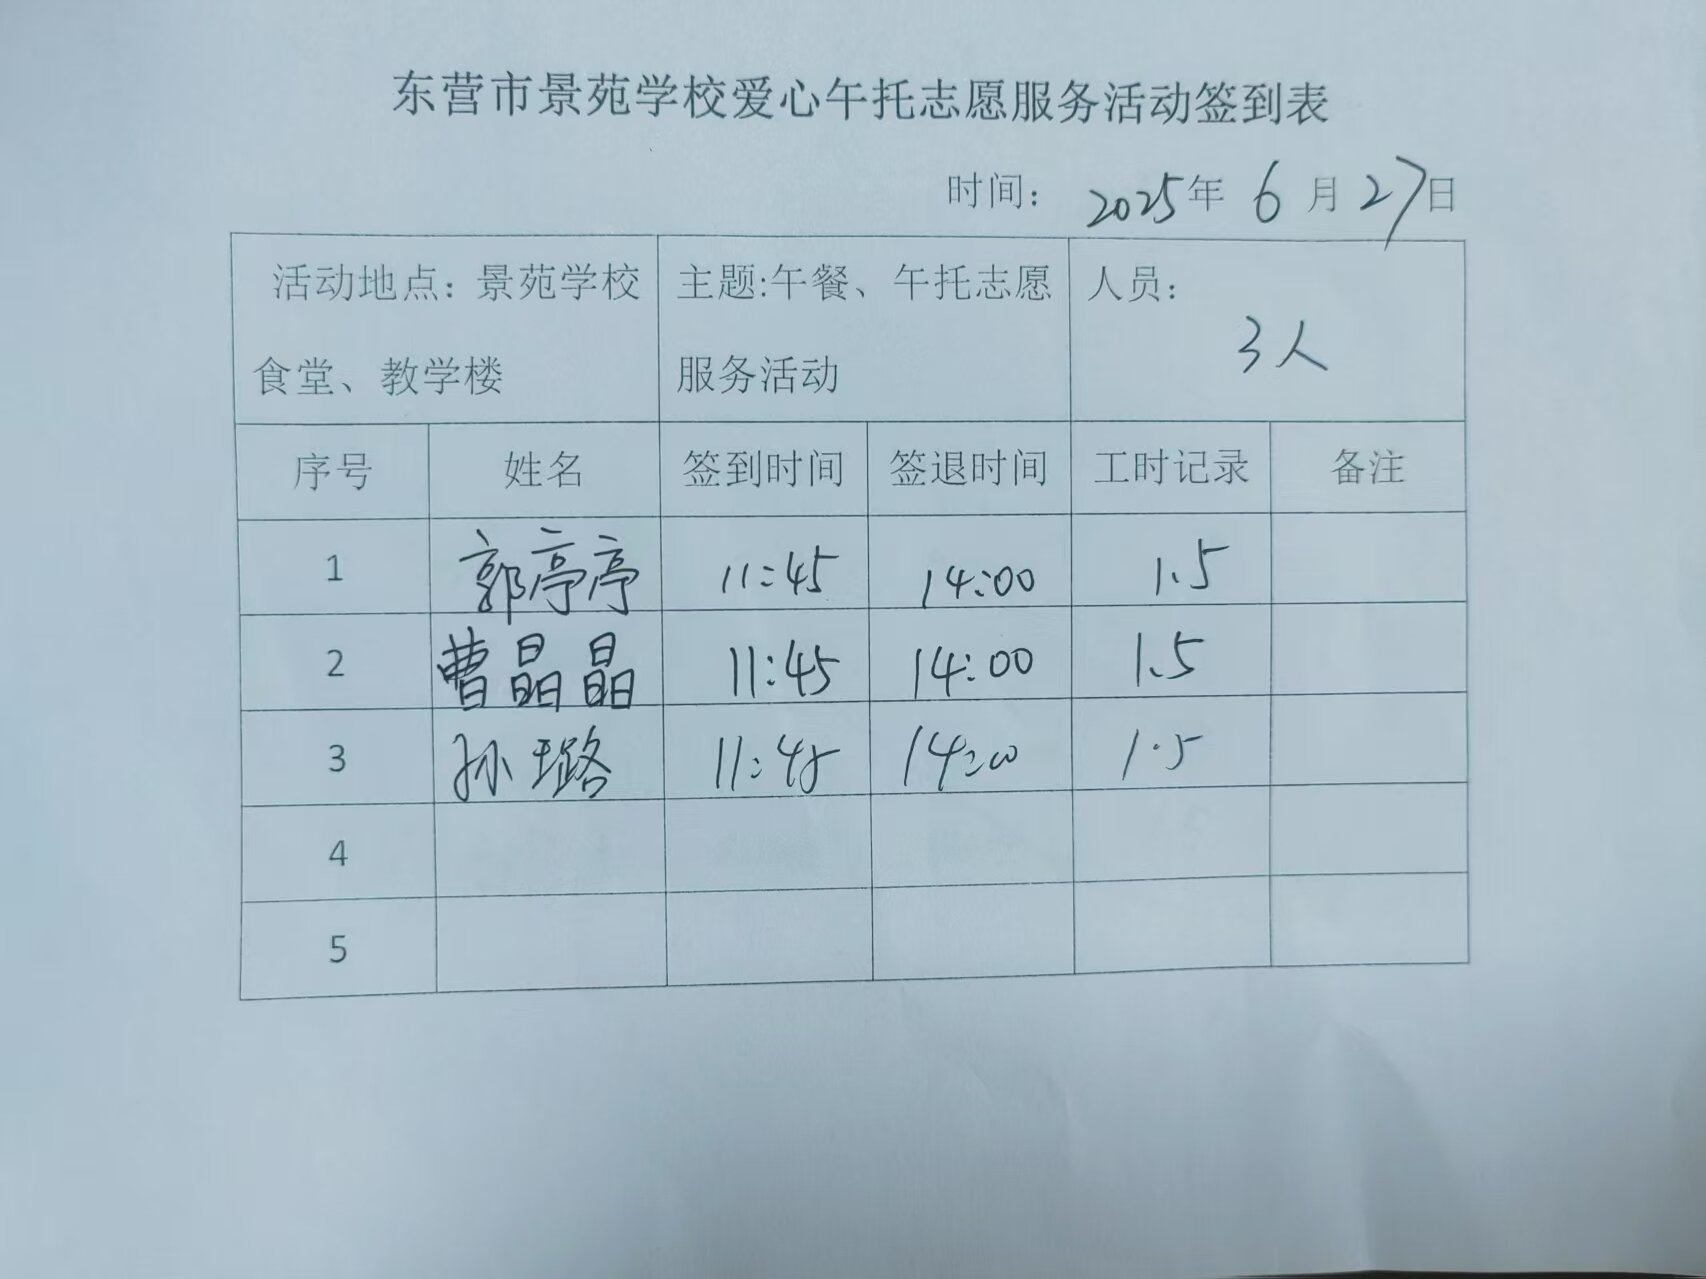 东营市景苑学校爱心午托志愿服务活动签到表
时间： 2025年 6月27日
活动地点：景苑学校食堂、教学楼 主题:午餐、午托志愿服务活动 人员：3人
序号 姓名 签到时间 签退时间 工时记录 备注
1 郭亭亭 11:45 14:00 1.5
2 曹晶晶 11:45 14:00 1.5
3 孙璐 11:45 14:00 1.5
4
5